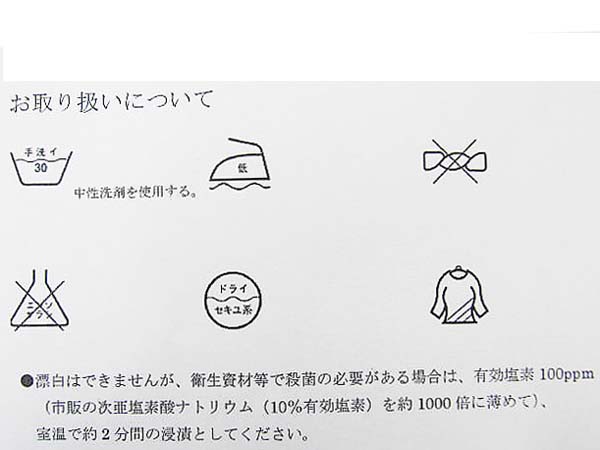 お取り扱いについて
手洗イ
30
中性洗剤を使用する。
低
エンソ
サラシ
ドライ
セキユ系
●漂白はできませんが、衛生資材等で殺菌の必要がある場合は、有効塩素 100ppm
（市販の次亜塩素酸ナトリウム（10%有効塩素）を約 1000 倍に薄めて）、
室温で約 2 分間の浸漬としてください。